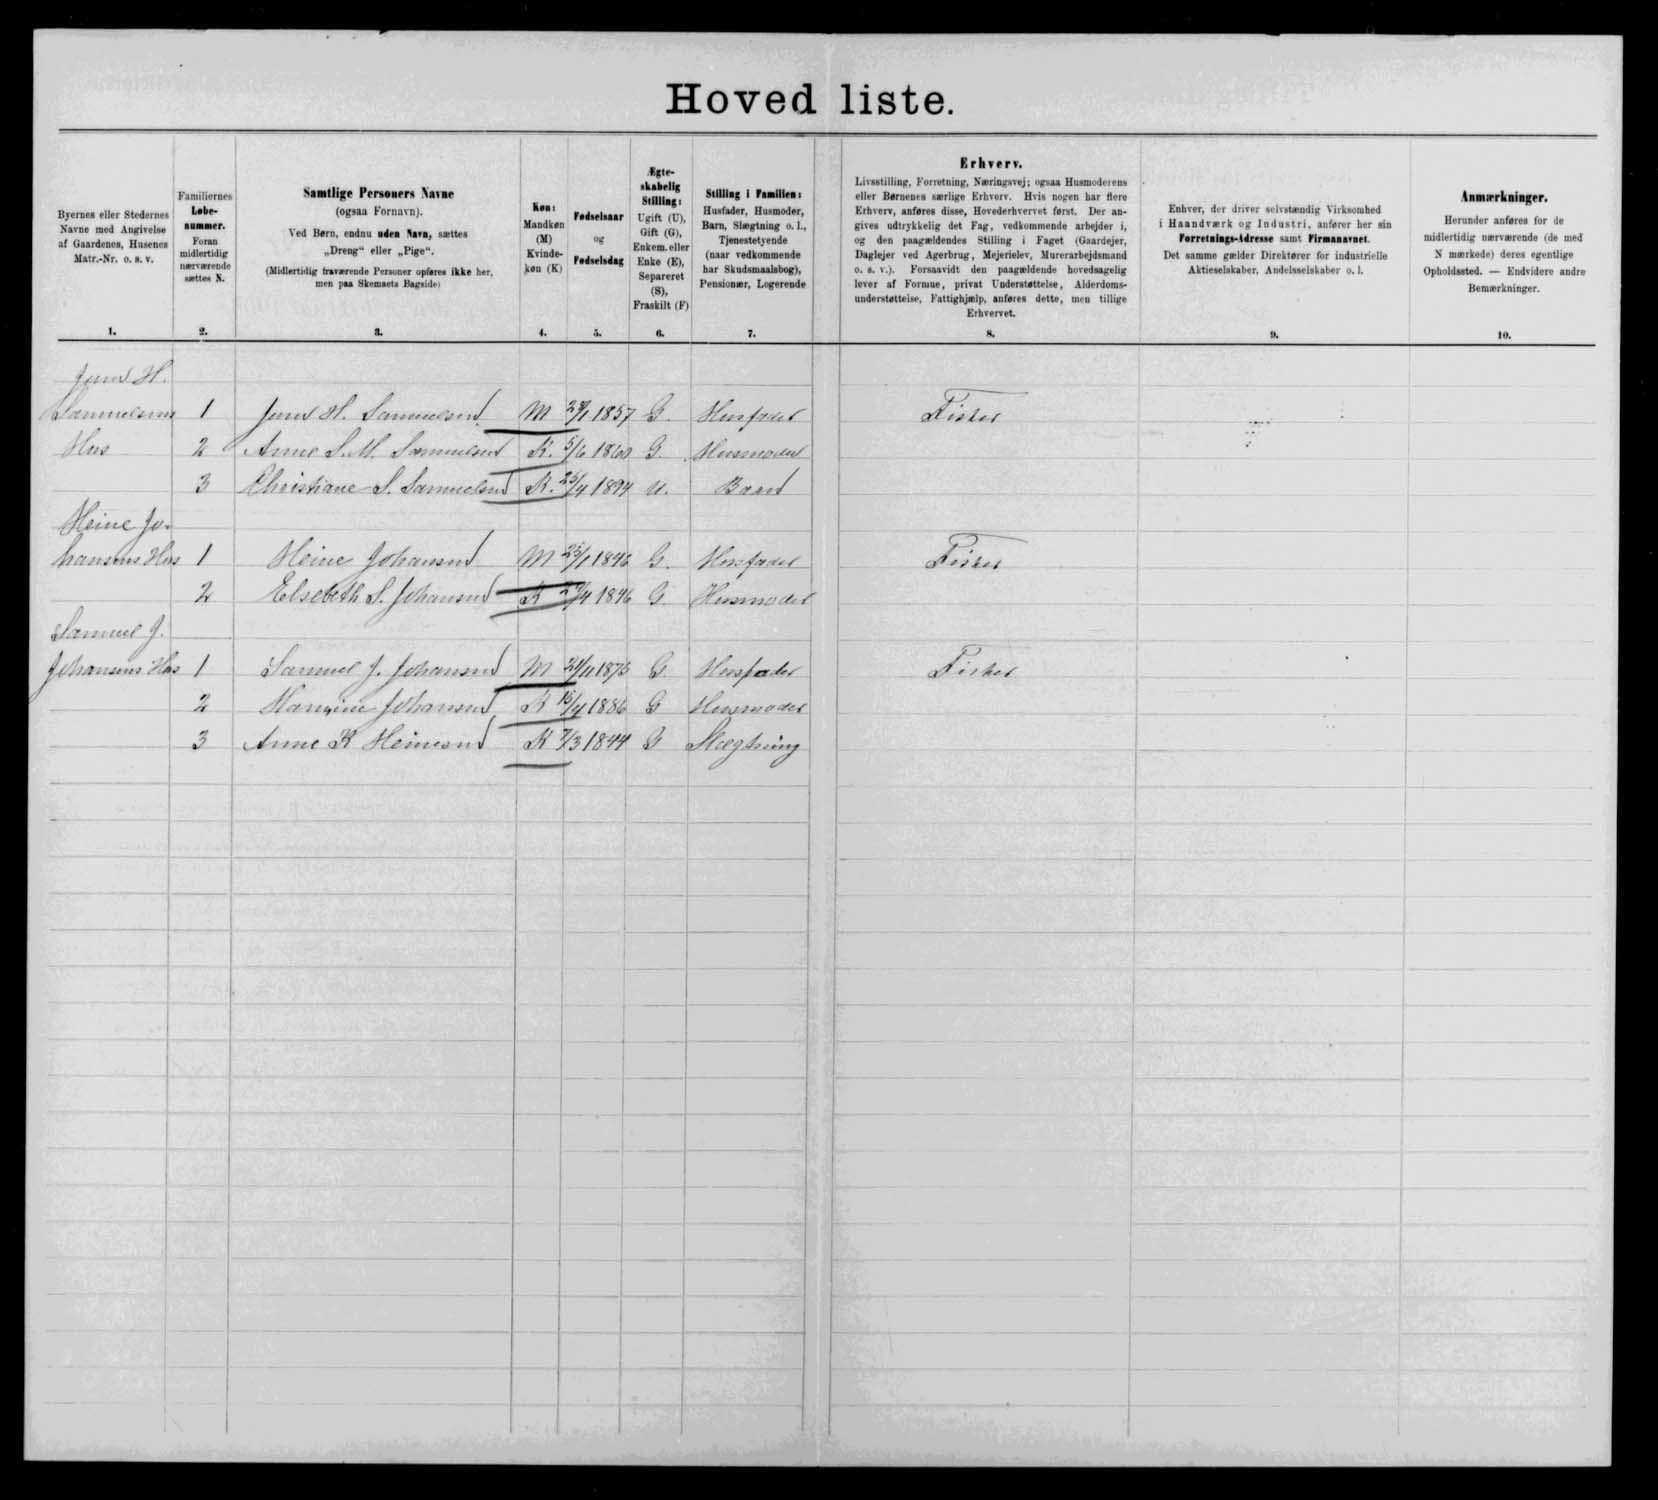 Hoved liste.
Byernes eller Stedernes
Navne med Angivelse
af Gaardenes, Husenes
Matr.-Nr. o. s. v.
1.
Familiernes
Løbe-
nummer.
Foran
midlertidig
nærværende
sættes N.
2.
Samtlige Personers Navne
(ogsaa Fornavn).
Ved Børn, endnu uden Navn, sættes
„Dreng“ eller „Pige“.
(Midlertidig fraværende Personer opføres ikke her,
men paa Skemaets Bagside)
3.
Køn:
Mandkøn
(M)
Kvinde-
køn (K)
4.
Fødselsaar
og
Fødselsdag
5.
Ægte-
skabelig
Stilling:
Ugift (U),
Gift (G),
Enkem. eller
Enke (E),
Separeret
(S),
Fraskilt (F)
6.
Stilling i Familien:
Husfader, Husmoder,
Barn, Slægtning o. l.,
Tjenestetyende
(naar vedkommende
har Skudsmaalsbog),
Pensionær, Logerende
7.
Erhverv.
Livsstilling, Forretning, Næringsvej; ogsaa Husmoderens
eller Børnenes særlige Erhverv. Hvis nogen har flere
Erhverv, anføres disse, Hovederhvervet først. Der an-
gives udtrykkelig det Fag, vedkommende arbejder i,
og den paagældendes Stilling i Faget (Gaardejer,
Daglejer ved Agerbrug, Mejerielev, Murerarbejdsmand
o. s. v.). Forsaavidt den paagældende hovedsagelig
lever af Formue, privat Understøttelse, Alderdoms-
understøttelse, Fattighjælp, anføres dette, men tillige
Erhvervet.
8.
Enhver, der driver selvstændig Virksomhed
i Haandværk og Industri, anfører her sin
Forretnings-Adresse samt Firmanavnet.
Det samme gælder Direktører for industrielle
Aktieselskaber, Andelsselskaber o. l.
9.
Anmærkninger.
Herunder anføres for de
midlertidig nærværende (de med
N mærkede) deres egentlige
Opholdssted. — Endvidere andre
Bemærkninger.
10.
H.
Samuelsens 1 H. Samuelsen M 1857 G. Husfader Fisker
Hus 2 Anne S. M. Samuelsen K. 5/6 1860 G. Husmoder
3 Christiane S. Samuelsen K. 25/4 1894 U. Barn
Heine Jo-
hansens Hus 1 Heine Johansen M 1846 G. Husfader Fisker
2 Elsebeth S. Johansen K 1846 G. Husmoder
Samuel J.
Johansens Hus 1 Samuel J. Johansen M 1875 G. Husfader Fisker
2 Johansen K 1886 G Husmoder
3 Anne K Heinesen K 7/3 1844 G Slægtning